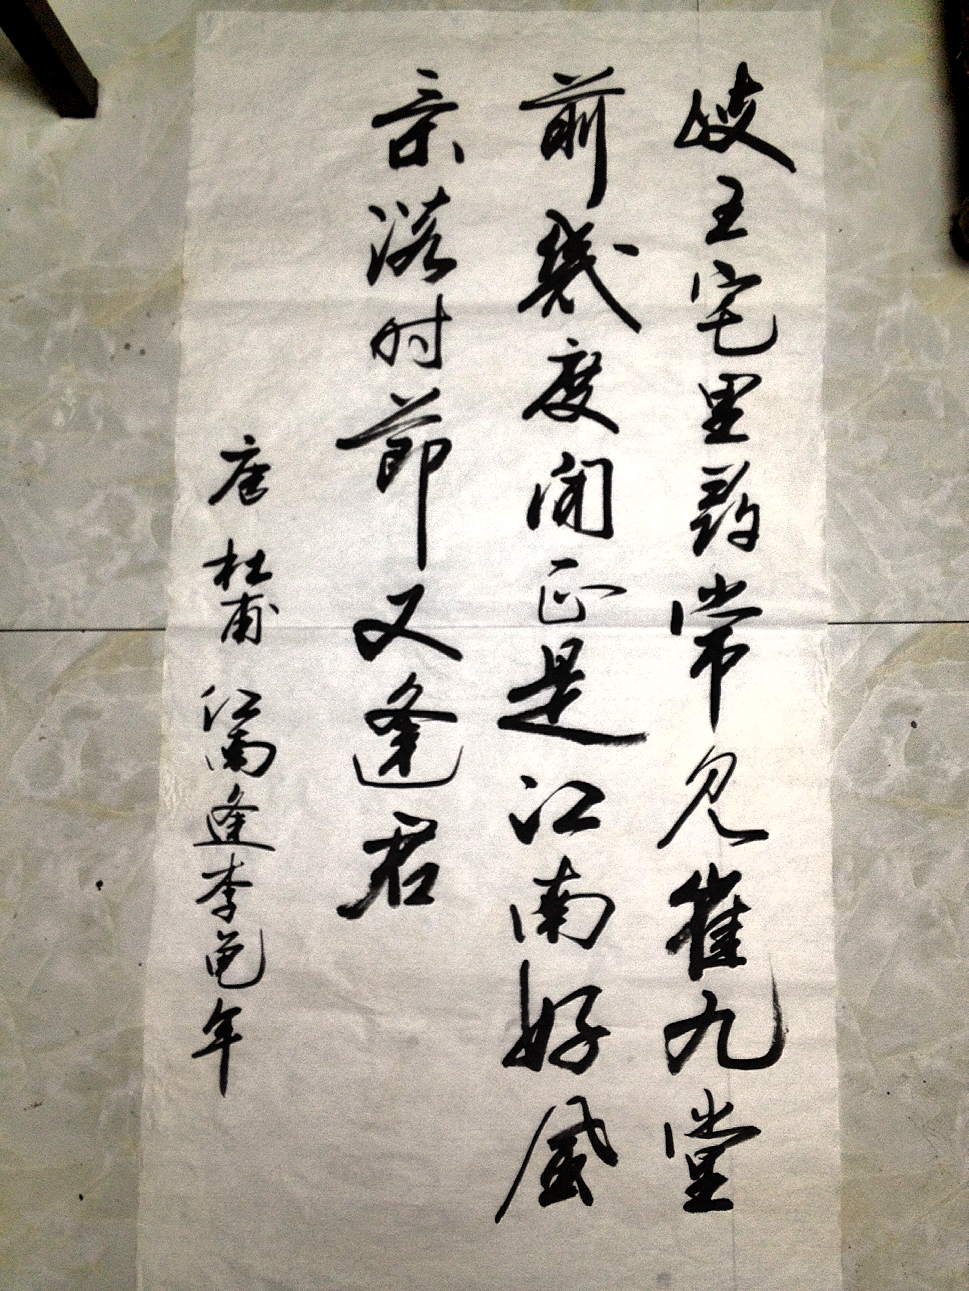 岐王宅里尋常见崔九堂
前幾度闻正是江南好風
景落时節又逢君
唐 杜甫 江南逢李龟年